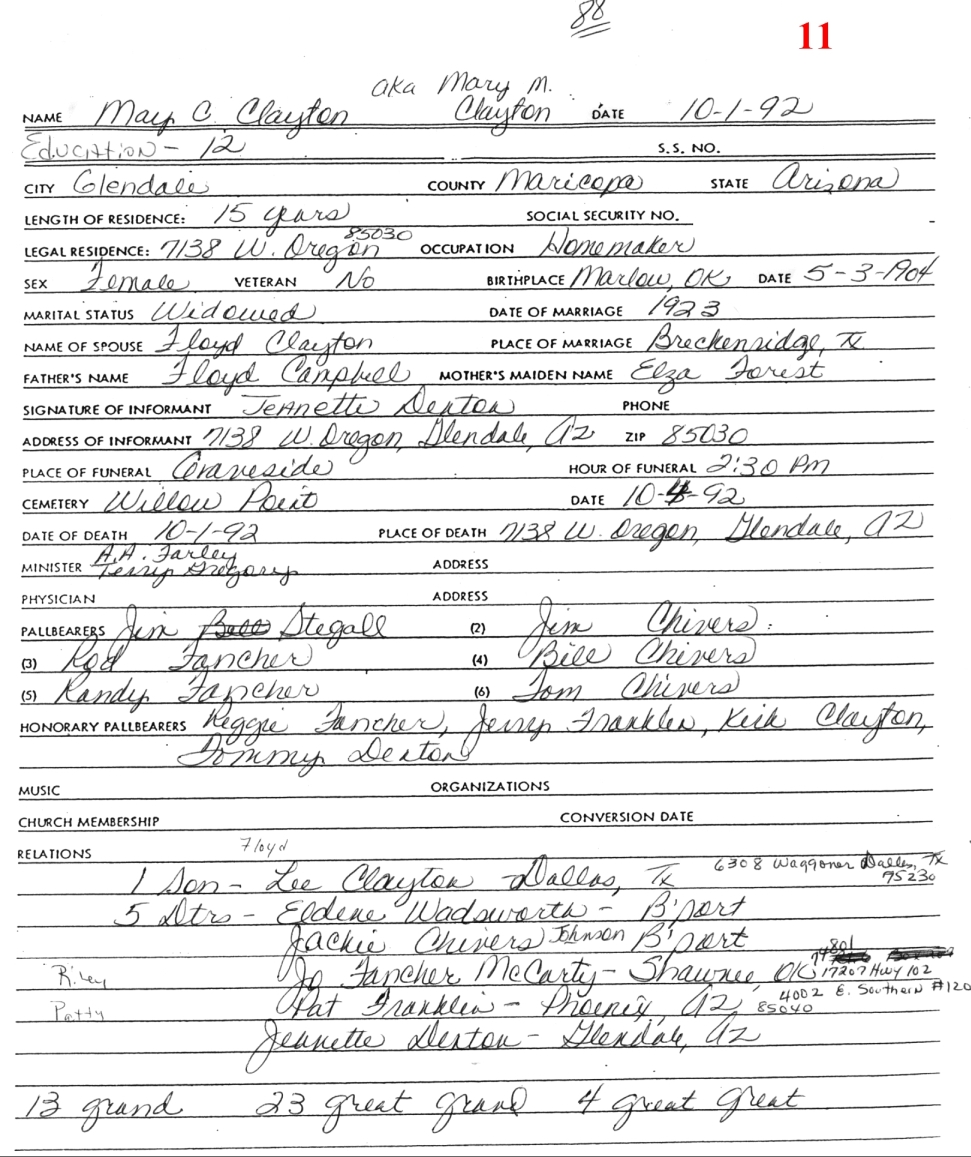 88
11
aka Mary M.
NAME May C. Clayton Clayton DATE 10-1-92
Education - 12 S.S. NO.
CITY Glendale COUNTY Maricopa STATE Arizona
LENGTH OF RESIDENCE: 15 years SOCIAL SECURITY NO.
85030
LEGAL RESIDENCE: 7138 W. Oregon OCCUPATION Homemaker
SEX Female VETERAN No BIRTHPLACE Marlow, OK DATE 5-3-1904
MARITAL STATUS Widowed DATE OF MARRIAGE 1923
NAME OF SPOUSE Floyd Clayton PLACE OF MARRIAGE Breckenridge, TX
FATHER'S NAME Floyd Campbell MOTHER'S MAIDEN NAME Elza Forest
SIGNATURE OF INFORMANT Jeanette Denton PHONE
ADDRESS OF INFORMANT 7138 W. Oregon, Glendale, AZ ZIP 85030
PLACE OF FUNERAL Graveside HOUR OF FUNERAL 2:30 PM
CEMETERY Willow Point DATE 10-4-92
DATE OF DEATH 10-1-92 PLACE OF DEATH 7138 W. Oregon, Glendale, AZ
A.A. Farley
MINISTER Terry Gregory ADDRESS
PHYSICIAN ADDRESS
PALLBEARERS Jim Bill Stegall (2) Jim Chivers
(3) Rod Fancher (4) Bill Chivers
(5) Randy Fancher (6) Tom Chivers
HONORARY PALLBEARERS Reggie Fancher, Jerry Franklin, Kirk Clayton,
Tommy Denton
MUSIC ORGANIZATIONS
CHURCH MEMBERSHIP CONVERSION DATE
RELATIONS Floyd
1 Son - Lee Clayton Dallas, TX 6308 Waggoner Dallas, TX
75230
5 Dtrs - Eldene Wadsworth - B'port
Jackie Chivers Johnson B'port
74801
Riley Jo Fancher McCarty - Shawnee, OK 17207 Hwy 102
Patty Pat Franklin - Phoenix, AZ 4002 E. Southern #120
85040
Jeanette Denton - Glendale, AZ
13 grand 23 great grand 4 great great